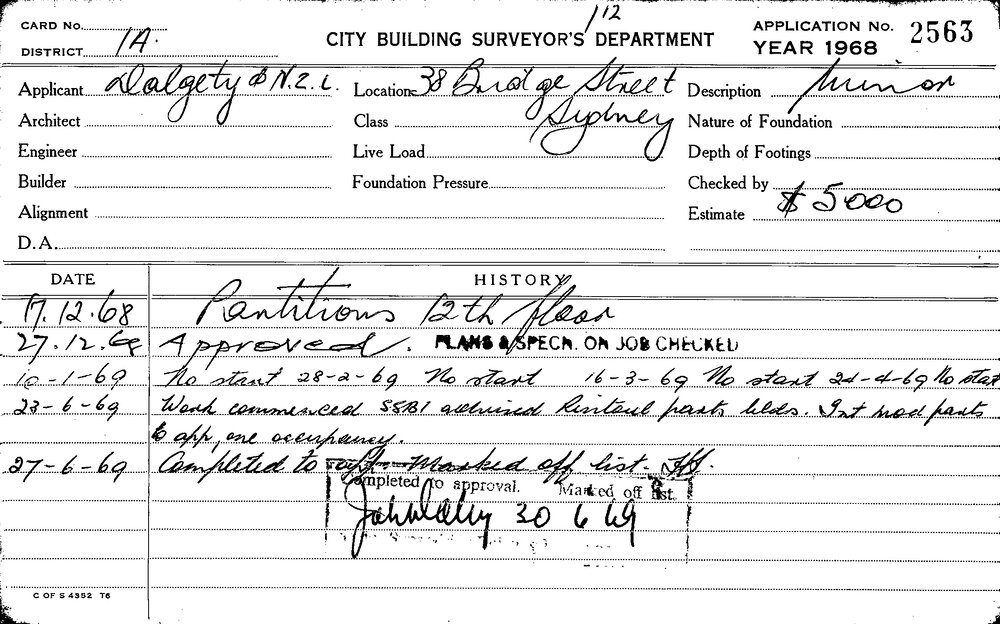 1/12
CARD No.
DISTRICT 1A.
CITY BUILDING SURVEYOR'S DEPARTMENT
APPLICATION No. 2563
YEAR 1968
Applicant Dalgety & N.Z.L. Location 38 Bridge Street Description Minor
Architect Class Sydney Nature of Foundation
Engineer Live Load Depth of Footings
Builder Foundation Pressure Checked by
Alignment Estimate $5000
D.A.
DATE HISTORY
17.12.68 Partitions 12th floor
27.12.68 Approved. PLANS & SPECN. ON JOB CHECKED
10-1-69 No start 28-2-69 No start 16-3-69 No start 24-4-69 No start
23-6-69 Work commenced SSBI advised parts blds. Int mod parts
to app, one occupancy.
27-6-69 Completed to app. Marked off list.
Completed to approval. Marked off list.
30 6 69
C OF S 4352 T6